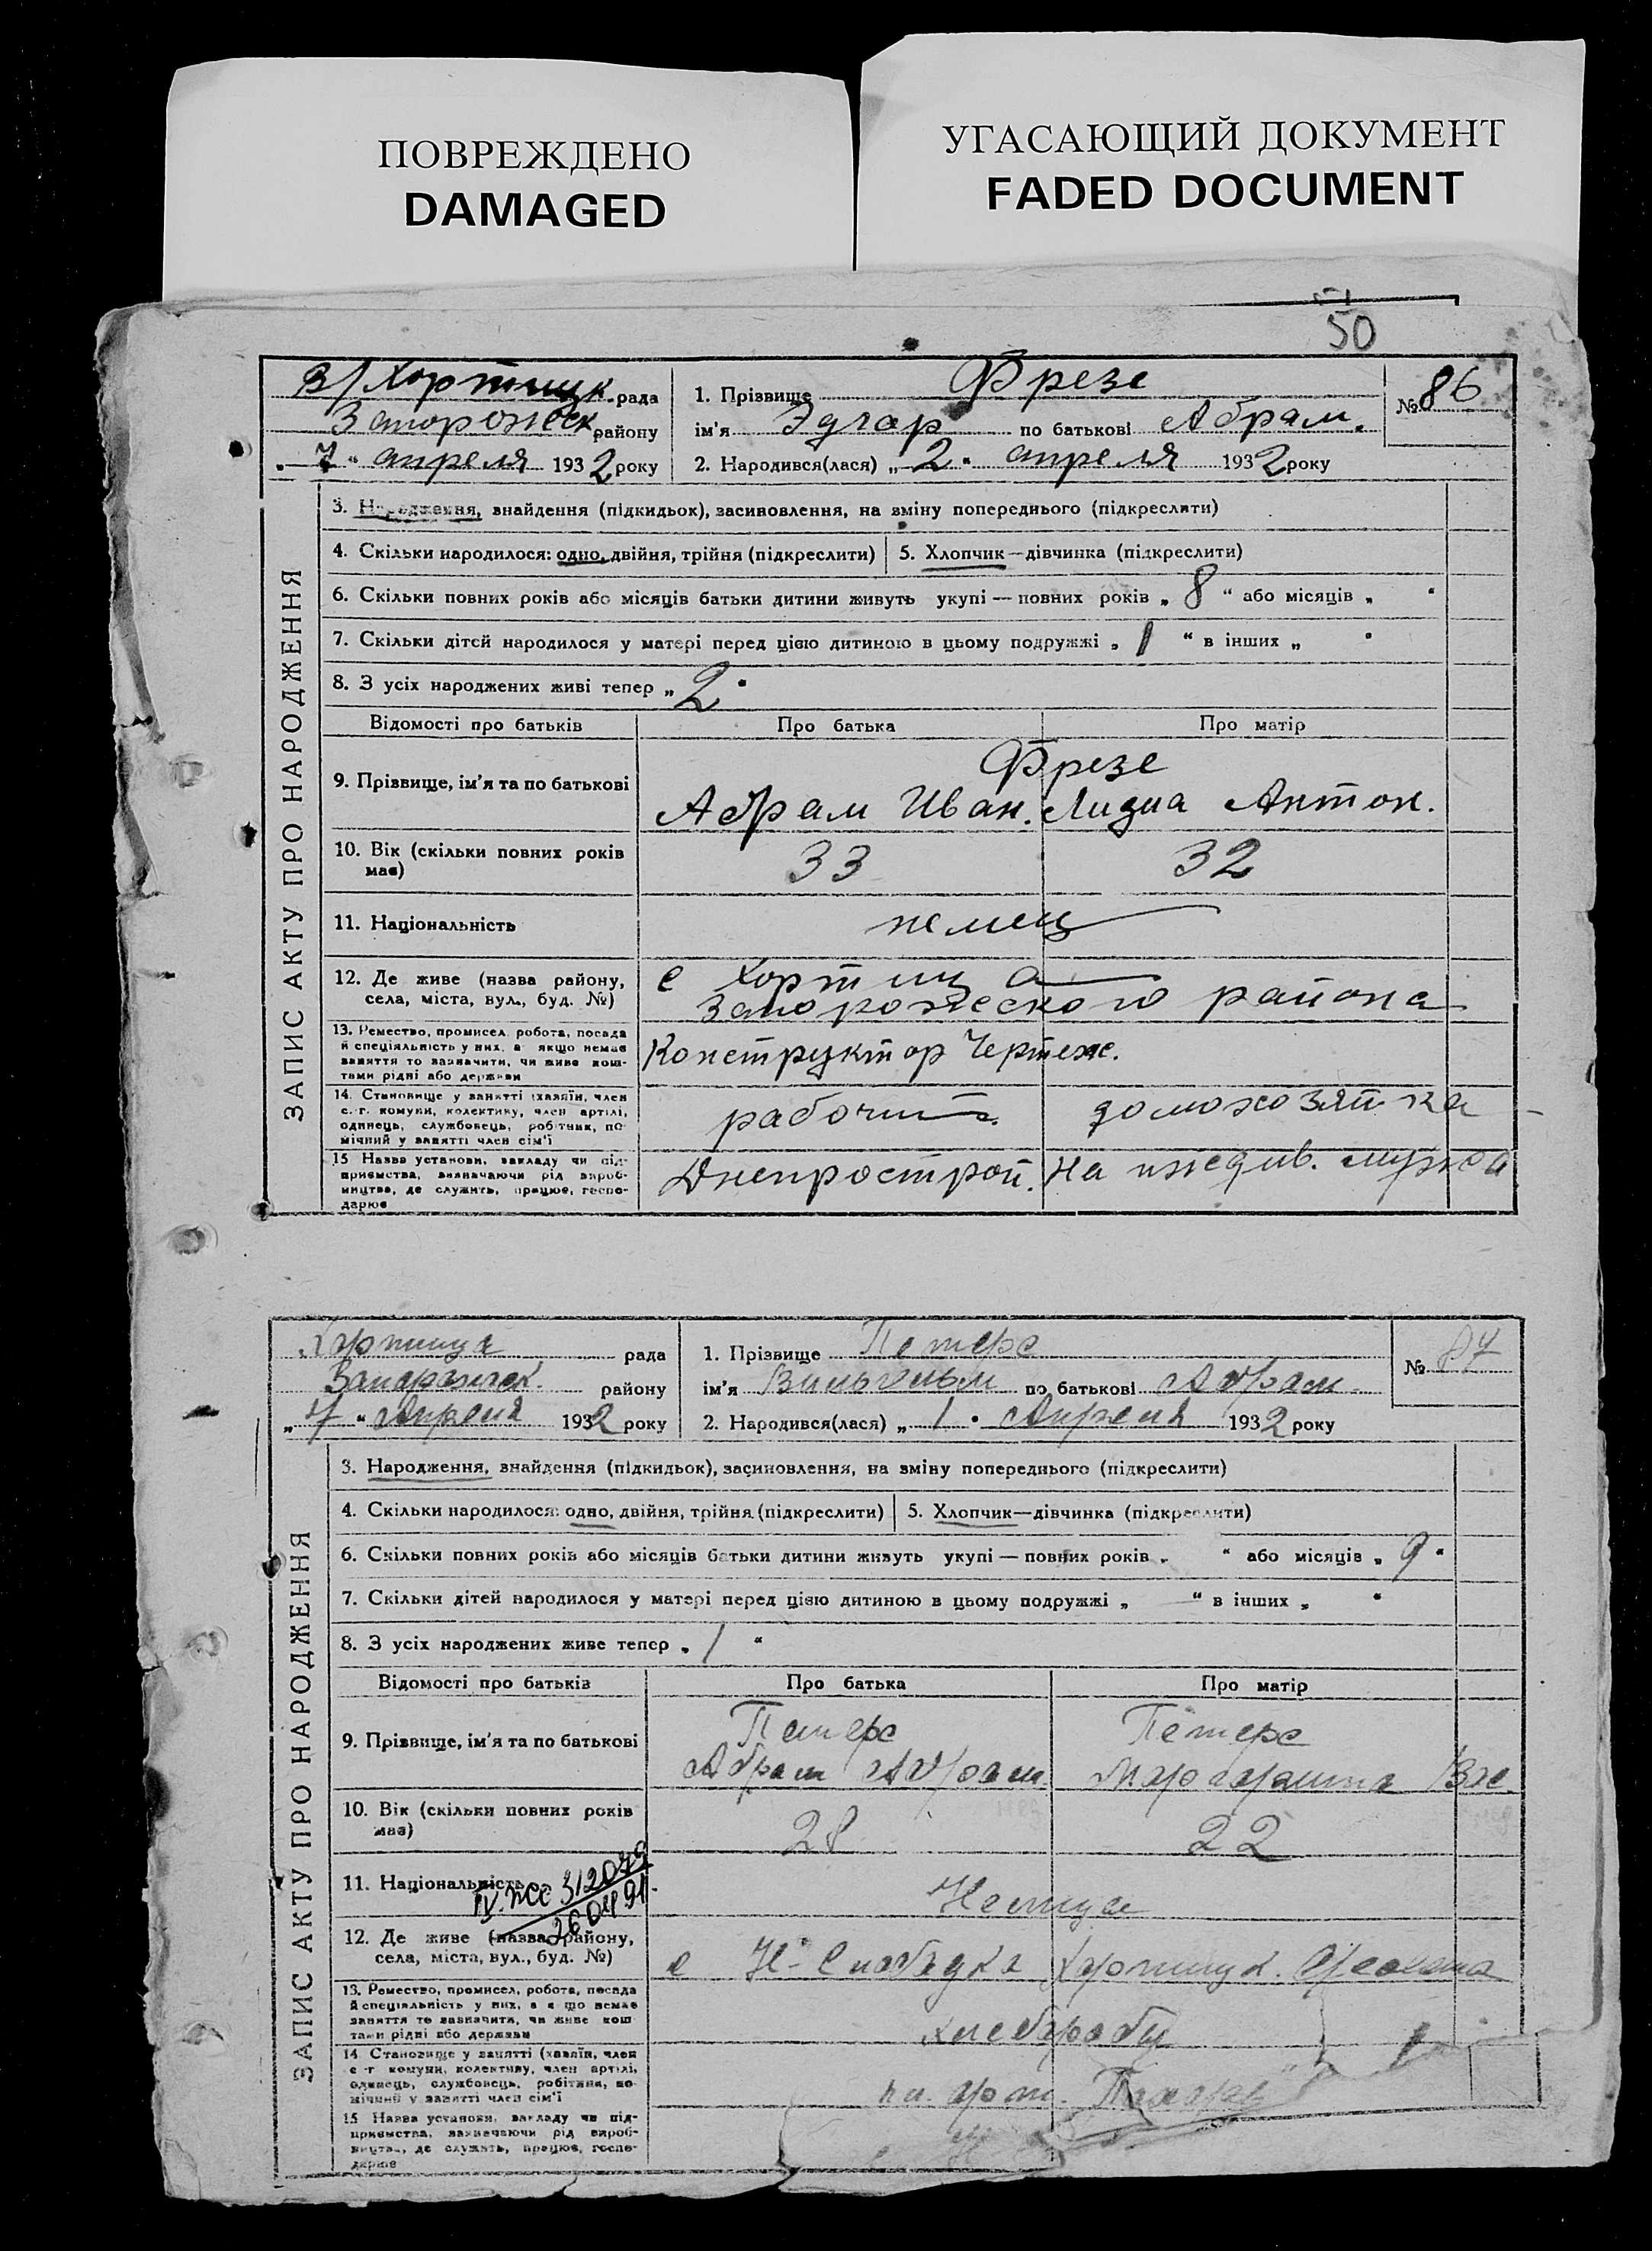 ПОВРЕЖДЕНО
DAMAGED
УГАСАЮЩИЙ ДОКУМЕНТ
FADED DOCUMENT
50
В/Хортицк. рада
Запорожск. району
„ 7 “ апреля 1932 року
1. Прізвище Фрезе
ім'я Эдгар по батькові Абрам.
№ 86
2. Народився(лася) „ 2 “ апреля 1932 року
ЗАПИС АКТУ ПРО НАРОДЖЕННЯ
3. Народження, знайдення (підкидьок), засиновлення, на зміну попереднього (підкреслити)
4. Скільки народилося: одно, двійня, трійня (підкреслити)
5. Хлопчик—дівчинка (підкреслити)
6. Скільки повних років або місяців батьки дитини живуть укупі — повних років „ 8 “ або місяців „ “
7. Скільки дітей народилося у матері перед цією дитиною в цьому подружжі „ 1 “ в інших „ “
8. З усіх народжених живі тепер „ 2 “
Відомості про батьків
Про батька
Про матір
9. Прізвище, ім'я та по батькові
Фрезе
Абрам Иван. Лидиа Антон.
10. Вік (скільки повних років має)
33
32
11. Національність
немец
12. Де живе (назва району, села, міста, вул., буд. №)
с Хортица
Запорожского района
13. Ремество, промисел, робота, посада
й спеціяльність у них, а якщо немає
заняття то зазначити, чи живе кош-
тами рідні або держави
Конструктор Чертеж.
14. Становище у занятті (хазяїн, член
с.-г. комуни, колективу, член артілі,
одинець, службовець, робітник, по-
мічний у занятті член сім'ї
рабочий
домохозяйка
15 Назва установи, закладу чи під-
приємства, зазначаючи рід вироб-
ництва, де служить, працює, госпо-
дарює
Днепрострой.
На иждив. мужа
Хортица рада
Запорожск. району
„ 7 “ Апреля 1932 року
1. Прізвище Петерс
ім'я Вильгельм по батькові Абрам.
№ 87
2. Народився(лася) „ 1 “ Апреля 1932 року
ЗАПИС АКТУ ПРО НАРОДЖЕННЯ
3. Народження, знайдення (підкидьок), засиновлення, на зміну попереднього (підкреслити)
4. Скільки народилося: одно, двійня, трійня (підкреслити)
5. Хлопчик—дівчинка (підкреслити)
6. Скільки повних років або місяців батьки дитини живуть укупі — повних років „ “ або місяців „ 9 “
7. Скільки дітей народилося у матері перед цією дитиною в цьому подружжі „ — “ в інших „ “
8. З усіх народжених живе тепер „ 1 “
Відомості про батьків
Про батька
Про матір
9. Прізвище, ім'я та по батькові
Петерс
Петерс
Абрам Абрам.
Маргарита
10. Вік (скільки повних років має)
28
22
11. Національність
312079
260491
Немца
12. Де живе (назва району, села, міста, вул., буд. №)
с Н-Слободка Хортицк. района
13. Ремество, промисел, робота, посада
й спеціяльність у них, а якщо немає
заняття то зазначити, чи живе кош-
тами рідні або держави
хлебаробы
14. Становище у занятті (хазяїн, член
с.-г. комуни, колективу, член артілі,
одинець, службовець, робітник, по-
мічний у занятті член сім'ї
15 Назва установи, закладу чи під-
приємства, зазначаючи рід вироб-
ництва, де служить, працює, госпо-
дарює